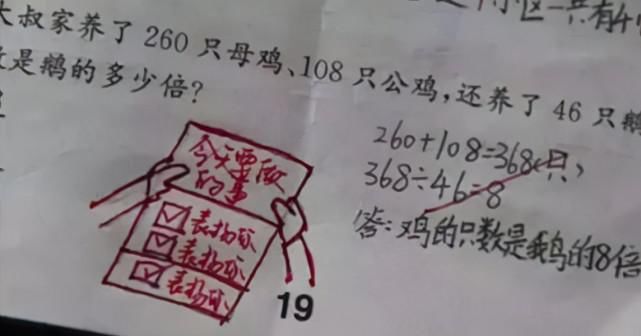 一共有4
大叔家养了260只母鸡、108只公鸡,还养了46只鹅
是鹅的多少倍?
260+108=368(只)
368÷46=8
答:鸡的只数是鹅的8倍
今天要做
的事
表扬你
表扬你
表扬你
19